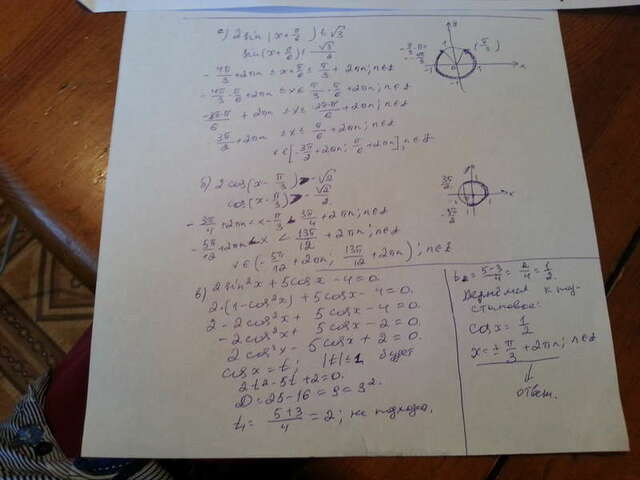 а) 2sin(x+π/6) ≤ √3
sin(x+π/6) ≤ √3/2
-4π/3+2πn ≤ x+π/6 ≤ π/3+2πn; n∈Z
-4π/3-π/6+2πn ≤ x ≤ π/3-π/6+2πn; n∈Z
+2πn ≤ x ≤ 2π-π/6+2πn; n∈Z
3π/2+2πn ≤ x ≤ π/6+2πn; n∈Z
x∈[-3π/2+2πn; π/6+2πn], n∈Z
б) 2cos(x-π/3) > -√2
cos(x-π/3) > -√2/2
-3π/4+2πn < x-π/3 < 3π/4+2πn; n∈Z
-5π/12+2πn < x < 13π/12+2πn; n∈Z
x∈(-5π/12+2πn; 13π/12+2πn), n∈Z
в) 2sin²x+5cosx-4=0.
2·(1-cos²x)+5cosx-4=0.
2-2cos²x+5cosx-4=0.
-2cos²x+5cosx-2=0.
2cos²x-5cosx+2=0.
cosx=t, |t|≤1 будет
2t²-5t+2=0.
D=25-16=9=3².
t₁=5+3/4=2; не подход.
t₂=5-3/4=2/4=1/2.
Вернёмся к под-
становке:
cosx=1/2
x=±π/3+2πn; n∈Z
⇓
ответ.